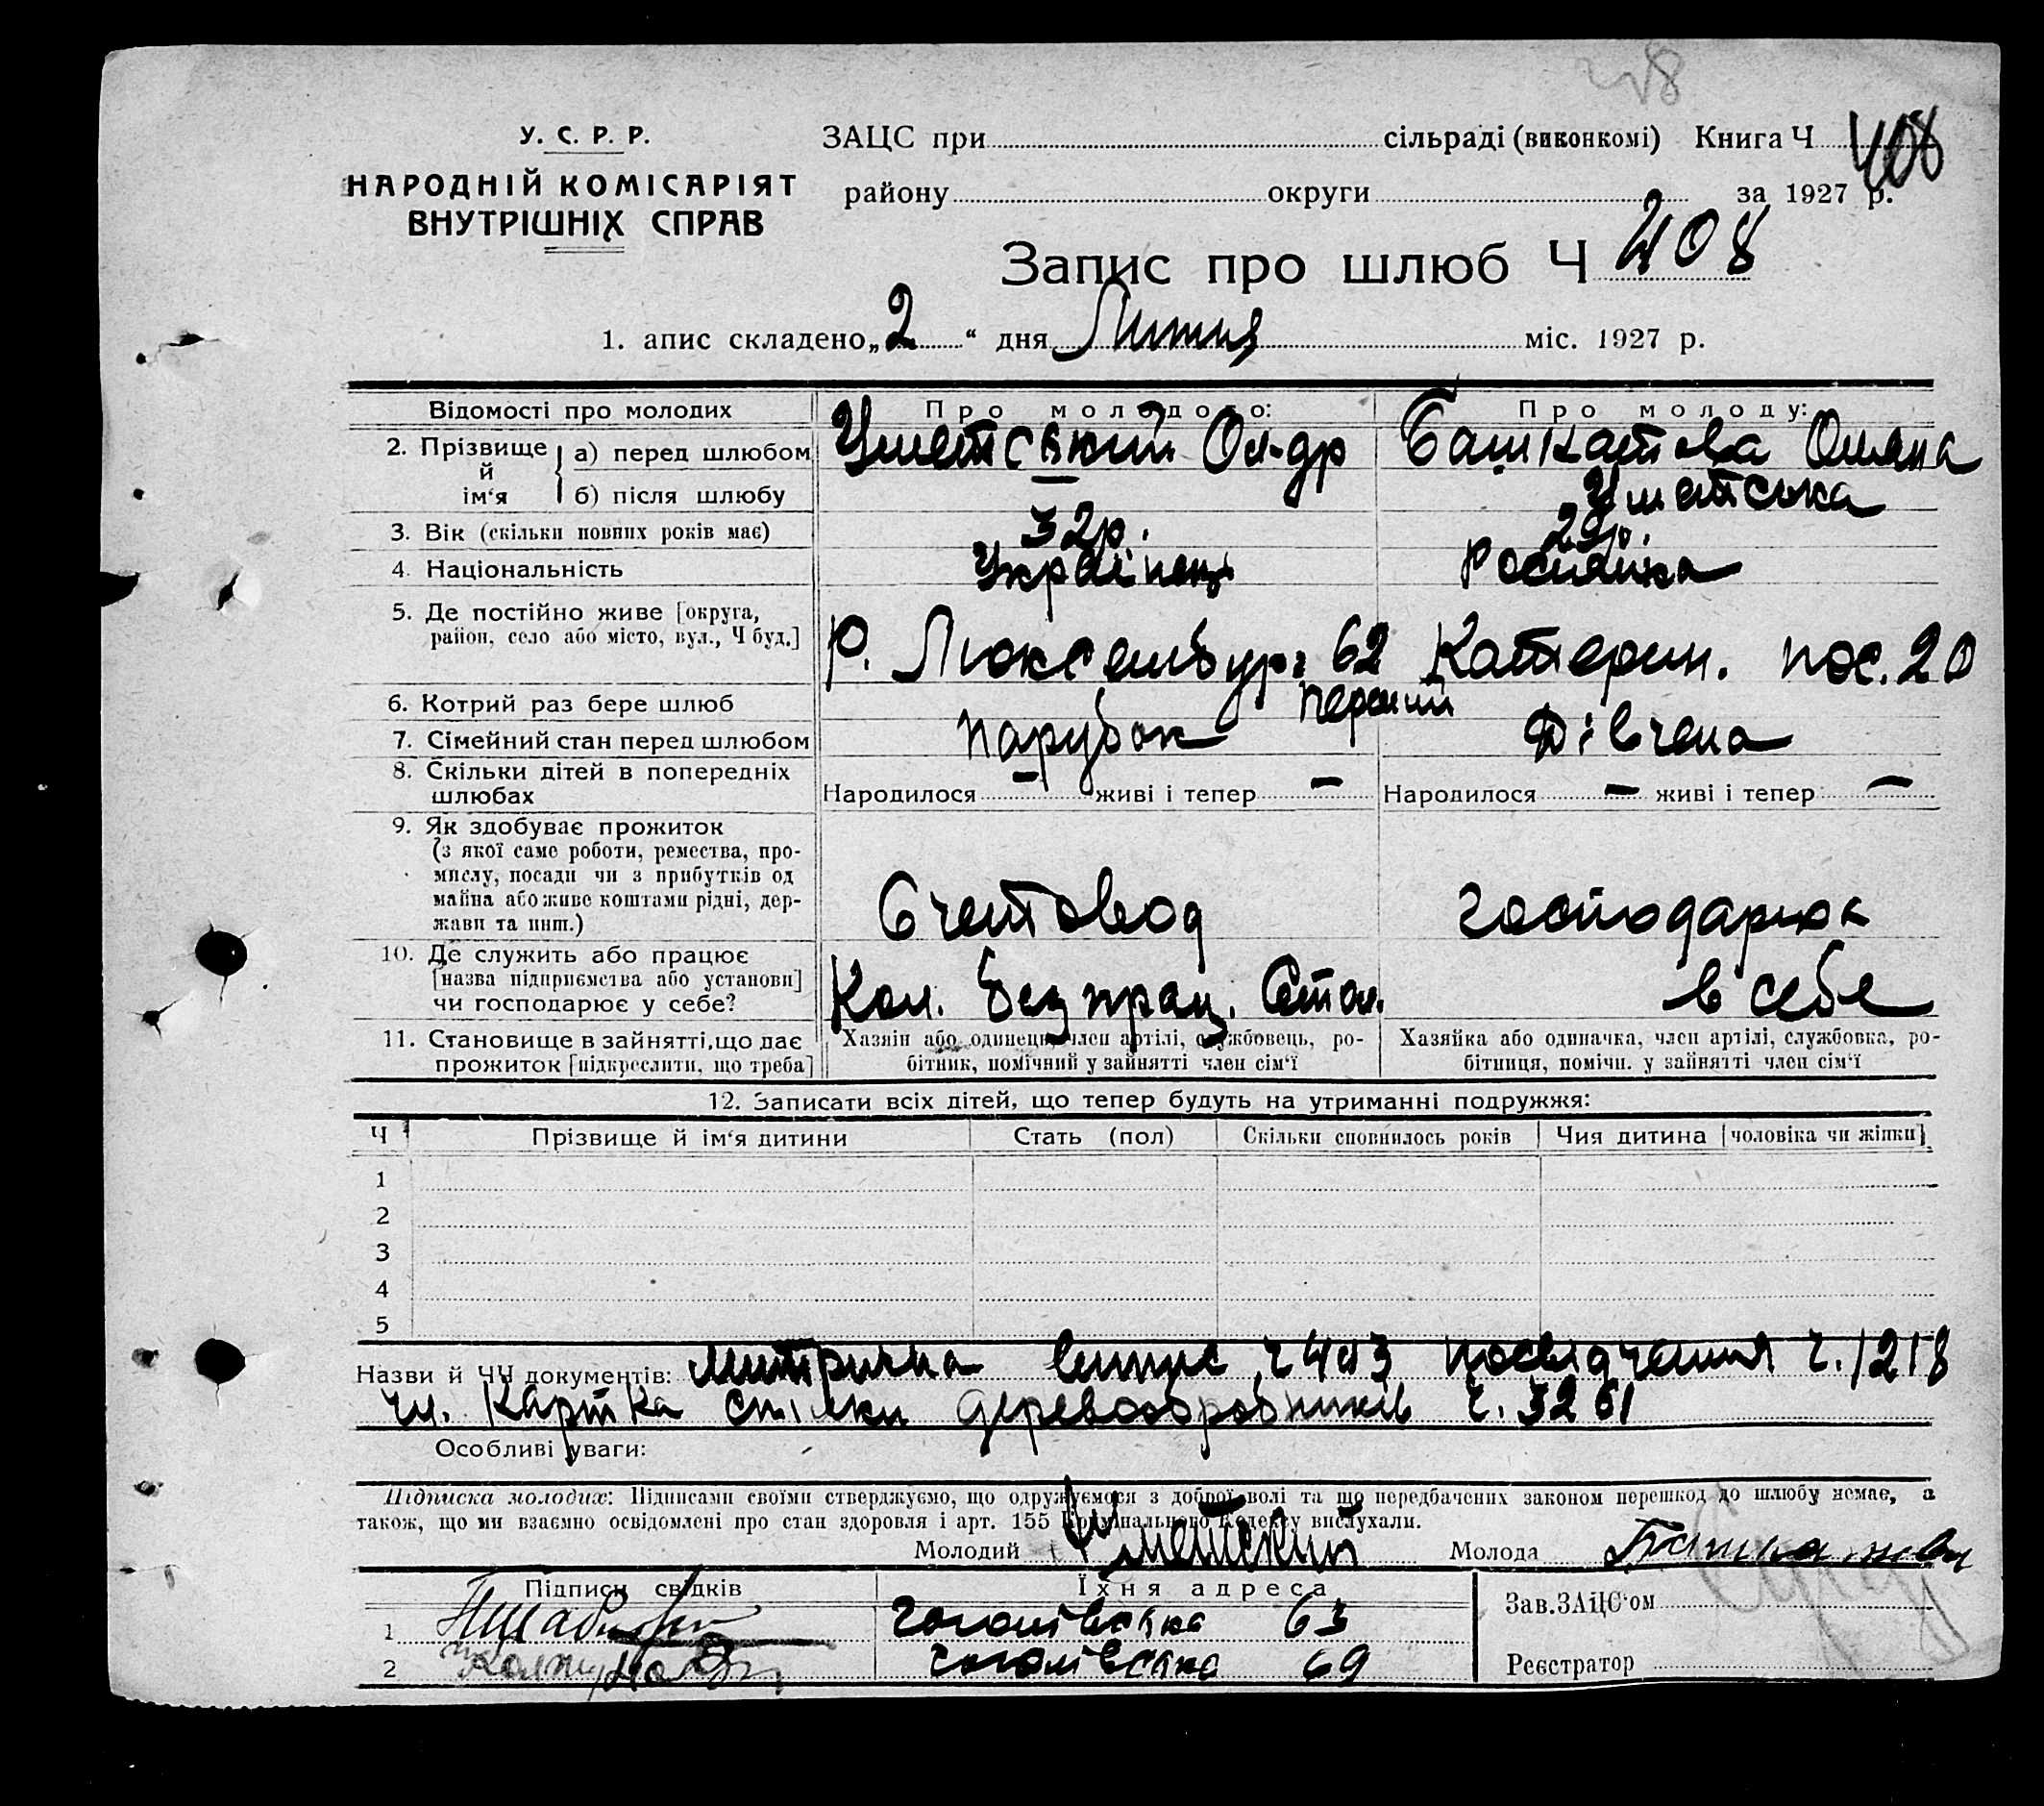 У. С. Р. Р.
НАРОДНІЙ КОМІСАРІЯТ
ВНУТРІШНІХ СПРАВ
ЗАЦС при сільраді (виконкомі) Книга Ч 408
району округи за 1927 р.
Запис про шлюб Ч 408
1. апис складено „2“ дня Липня міс. 1927 р.
Відомості про молодих Про молодого: Про молоду:
2. Прізвище й ім‘я а) перед шлюбом Уметський Ол-др Башкатова Оляна
б) після шлюбу Уметська
3. Вік (скільки повних років має) 32р. 29р.
4. Національність Українець Росиянка
5. Де постійно живе [округа,
район, село або місто, вул., Ч буд.] Р. Люксембург 62 Катерин. пос. 20
6. Котрий раз бере шлюб перший
7. Сімейний стан перед шлюбом парубок Дівчена
8. Скільки дітей в попередніх
шлюбах Народилося — живі і тепер — Народилося — живі і тепер —
9. Як здобуває прожиток
(з якої саме роботи, ремества, про-
мислу, посади чи з прибутків од
майна або живе коштами рідні, дер-
жави та инш.) Счетовод господарює
10. Де служить або працює
[назва підприємства або установи]
чи господарює у себе? Кол. Безпрац. Стол. в себе
11. Становище в зайнятті, що дає
прожиток [підкреслити, що треба]
Хазяїн або одинець, член артілі, службовець, ро-
бітник, помічний у зайнятті член сім‘ї
Хазяйка або одиначка, член артілі, службовка, ро-
бітниця, помічн. у зайнятті член сім‘ї
12. Записати всіх дітей, що тепер будуть на утриманні подружжя:
Ч Прізвище й ім‘я дитини Стать (пол) Скільки сповнилось років Чия дитина [чоловіка чи жінки]
1
2
3
4
5
Назви й ЧЧ документів: Митрична випис ч 403 посвідчення ч. 1218
чл. картка спілки деревообробників ч. 3261
Особливі уваги:
Підписка молодих: Підписами своїми стверджуємо, що одружуємося з доброї волі та що передбачених законом перешкод до шлюбу немає, а
також, що ми взаємно освідомлені про стан здоровля і арт. 155 Кримінального Кодексу вислухали.
Молодий Уметский Молода Башкатова
Підписи свідків Їхня адреса
1 Гоголівська 63
2 Гоголівська 69
Зав. ЗАЦС‘ом
Реєстратор